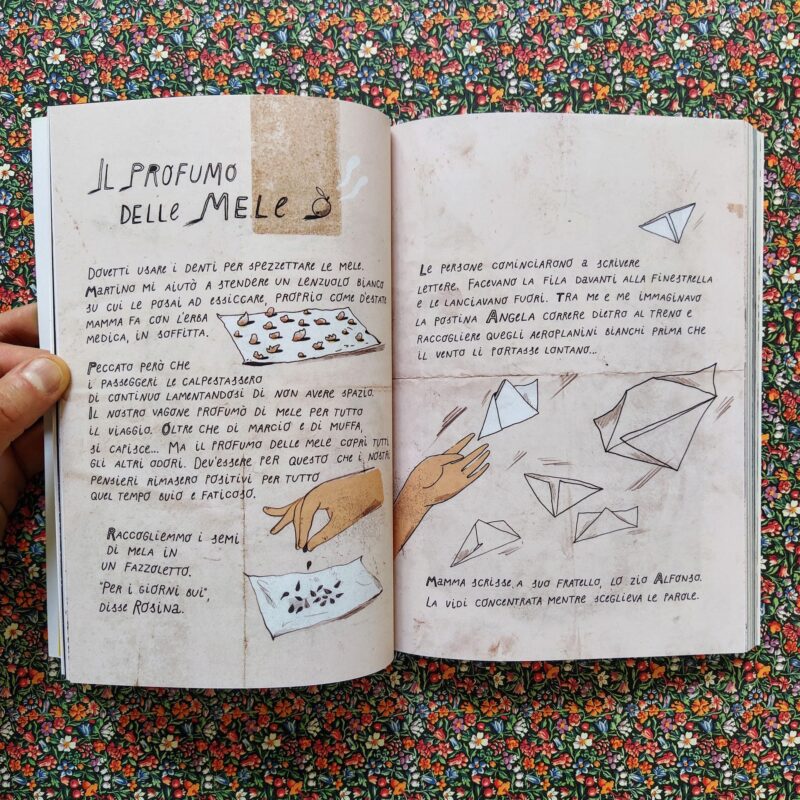 IL PROFUMO
DELLE MELE
DOVETTI USARE I DENTI PER SPEZZETTARE LE MELE.
MARTINO MI AIUTÒ A STENDERE UN LENZUOLO BIANCO
SU CUI LE POSAI AD ESSICCARE, PROPRIO COME D'ESTATE
MAMMA FA CON L'ERBA
MEDICA, IN SOFFITTA.
PECCATO PERÒ CHE
I PASSEGGERI LE CALPESTASSERO
DI CONTINUO LAMENTANDOSI DI NON AVERE SPAZIO.
IL NOSTRO VAGONE PROFUMÒ DI MELE PER TUTTO
IL VIAGGIO. OLTRE CHE DI MARCIO E DI MUFFA,
SI CAPISCE... MA IL PROFUMO DELLE MELE COPRÌ TUTTI
GLI ALTRI ODORI. DEV'ESSERE PER QUESTO CHE I NOSTRI
PENSIERI RIMASERO POSITIVI PER TUTTO
QUEL TEMPO BUIO E FATICOSO.
RACCOGLIEMMO I SEMI
DI MELA IN
UN FAZZOLETTO.
"PER I GIORNI BUI",
DISSE ROSINA.
LE PERSONE COMINCIARONO A SCRIVERE
LETTERE. FACEVANO LA FILA DAVANTI ALLA FINESTRELLA
E LE LANCIAVANO FUORI. TRA ME E ME IMMAGINAVO
LA POSTINA ANGELA CORRERE DIETRO AL TRENO E
RACCOGLIERE QUEGLI AEROPLANINI BIANCHI PRIMA CHE
IL VENTO LI PORTASSE LONTANO...
MAMMA SCRISSE A SUO FRATELLO, LO ZIO ALFONSO.
LA VIDI CONCENTRATA MENTRE SCEGLIEVA LE PAROLE.